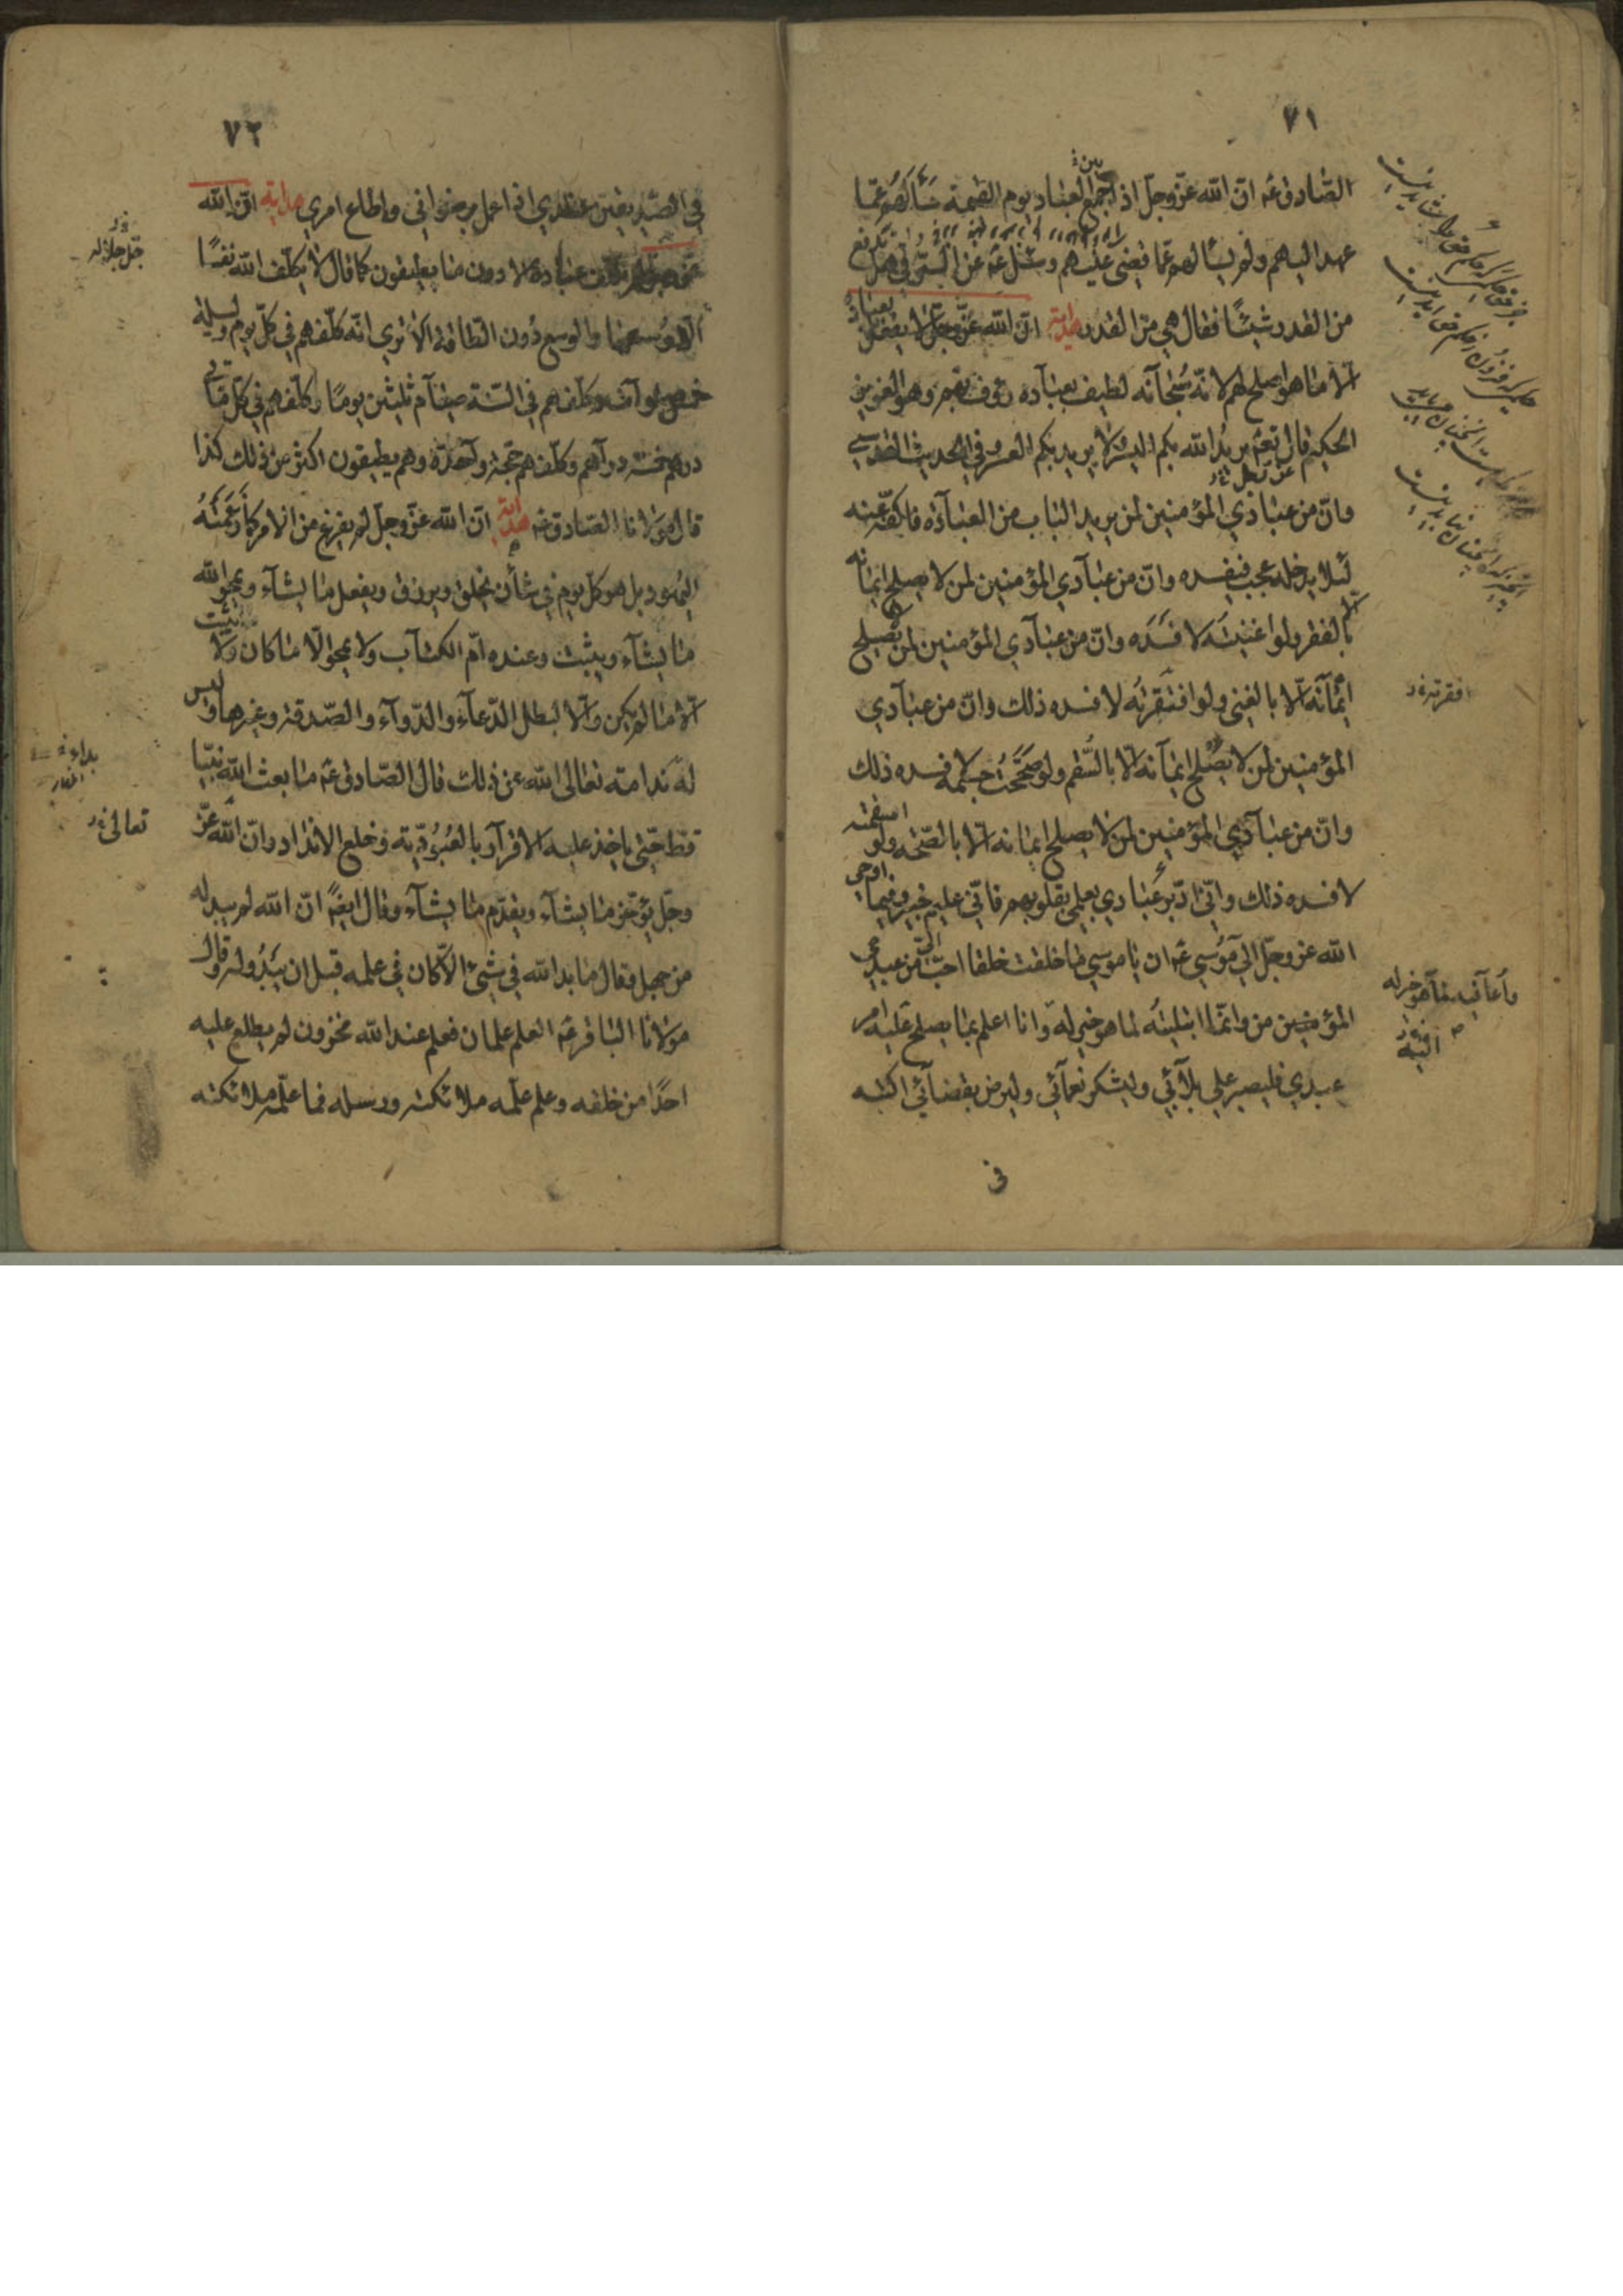 ٧١
الصادق عه ان الله عز وجل اذا جمع العباد يوم القيمة سألهم عما
عهد اليهم ولم يسألهم عما قضى عليهم وسئل عه عن الرقى هل تدفع
من القدر شيئًا فقال هي من القدر هداية ان الله عز وجل لا يفعل بعباده
الا ما هو اصلح لهم لانه سبحانه لطيف بعباده رؤف بهم وهو العزيز
الحكيم قال تعه يريد الله بكم اليسر ولا يريد بكم العسر وفي الحديث القدسي
وان من عبادي المؤمنين لمن يريد الباب من العبادة فاكفه عنه
لئلا يدخله عجب فيفسده وان من عبادي المؤمنين لمن لا يصلح ايمانه
الا بالفقر ولو اغنيته لافسده وان من عبادي المؤمنين لمن لا يصلح
ايمانه الا بالغنى ولو افتقرته لافسده ذلك وان من عبادي
المؤمنين لمن لا يصلح ايمانه الا بالسقم ولو صححت جسمه لافسده ذلك
وان من عبادي المؤمنين لمن لا يصلح ايمانه الا بالصحة ولو اسقمته
لافسده ذلك واني ادبر عبادي بعلمي بقلوبهم فاني عليم خبير وفيما اوحى
الله عز وجل الى موسى عه ان يا موسى ما خلقت خلقا احب الي من عبدي
المؤمنين من وانما ابتليته لما هو خير له وانا اعلم بما يصلح عليه امر
عبدي فليصبر على بلائي وليشكر نعمائي وليرض بقضائي اكتبه
في
افقرته
واعافيه لما هو خير له
٧٢
في الصديقين عندي اذا عمل برضواني واطاع امري هداية ان الله
لم يكلف عباده الا دون ما يطيقون كما قال لا يكلف الله نفسًا
الا وسعها والوسع دون الطاقة الا ترى انه كلفهم في كل يوم وليلة
خمس صلوات وكلفهم في السنة صيام ثلثين يومًا وكلفهم في كل مأتي
درهم خمسة دراهم وكلفهم حجة واحدة وهم يطيقون اكثر من ذلك كذا
قال مولانا الصادق عه هداية ان الله عز وجل لم يفرغ من الامر كما زعمته
اليهود بل هو كل يوم في شأن يخلق ويرزق ويفعل ما يشآء ويمحو الله
ما يشآء ويثبت وعنده ام الكتاب ولا يمحو الا ما كان ولا يثبت
الا ما لم يكن والا لبطل الدعآء والدوآء والصدقة وغيرها وليس
له ندامة تعالى الله عن ذلك قال الصادق عه ما بعث الله نبيًا
قط حتى ياخذ عليه الاقرار بالعبودية وخلع الانداد وان الله عز
وجل يؤخر ما يشآء ويقدم ما يشآء وقال ايضًا ان الله لم يبد له
من جهل وقال ما بدا لله في شئ الا كان في علمه قبل ان يبدو له وقال
مولانا الباقر عه العلم علمان فعلم عند الله مخزون لم يطلع عليه
احدًا من خلقه وعلم علمه ملائكته ورسله فما علمه ملائكته
جل جلاله
تعالى